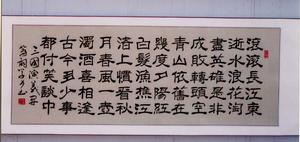 滾滾長江東
逝水浪花淘
盡英雄是非
成敗轉頭空
青山依舊在
幾度夕陽紅
白髮漁樵江
渚上慣看秋
月春風一壺
濁酒喜相逢
古今多少事
都付笑談中
三國演義